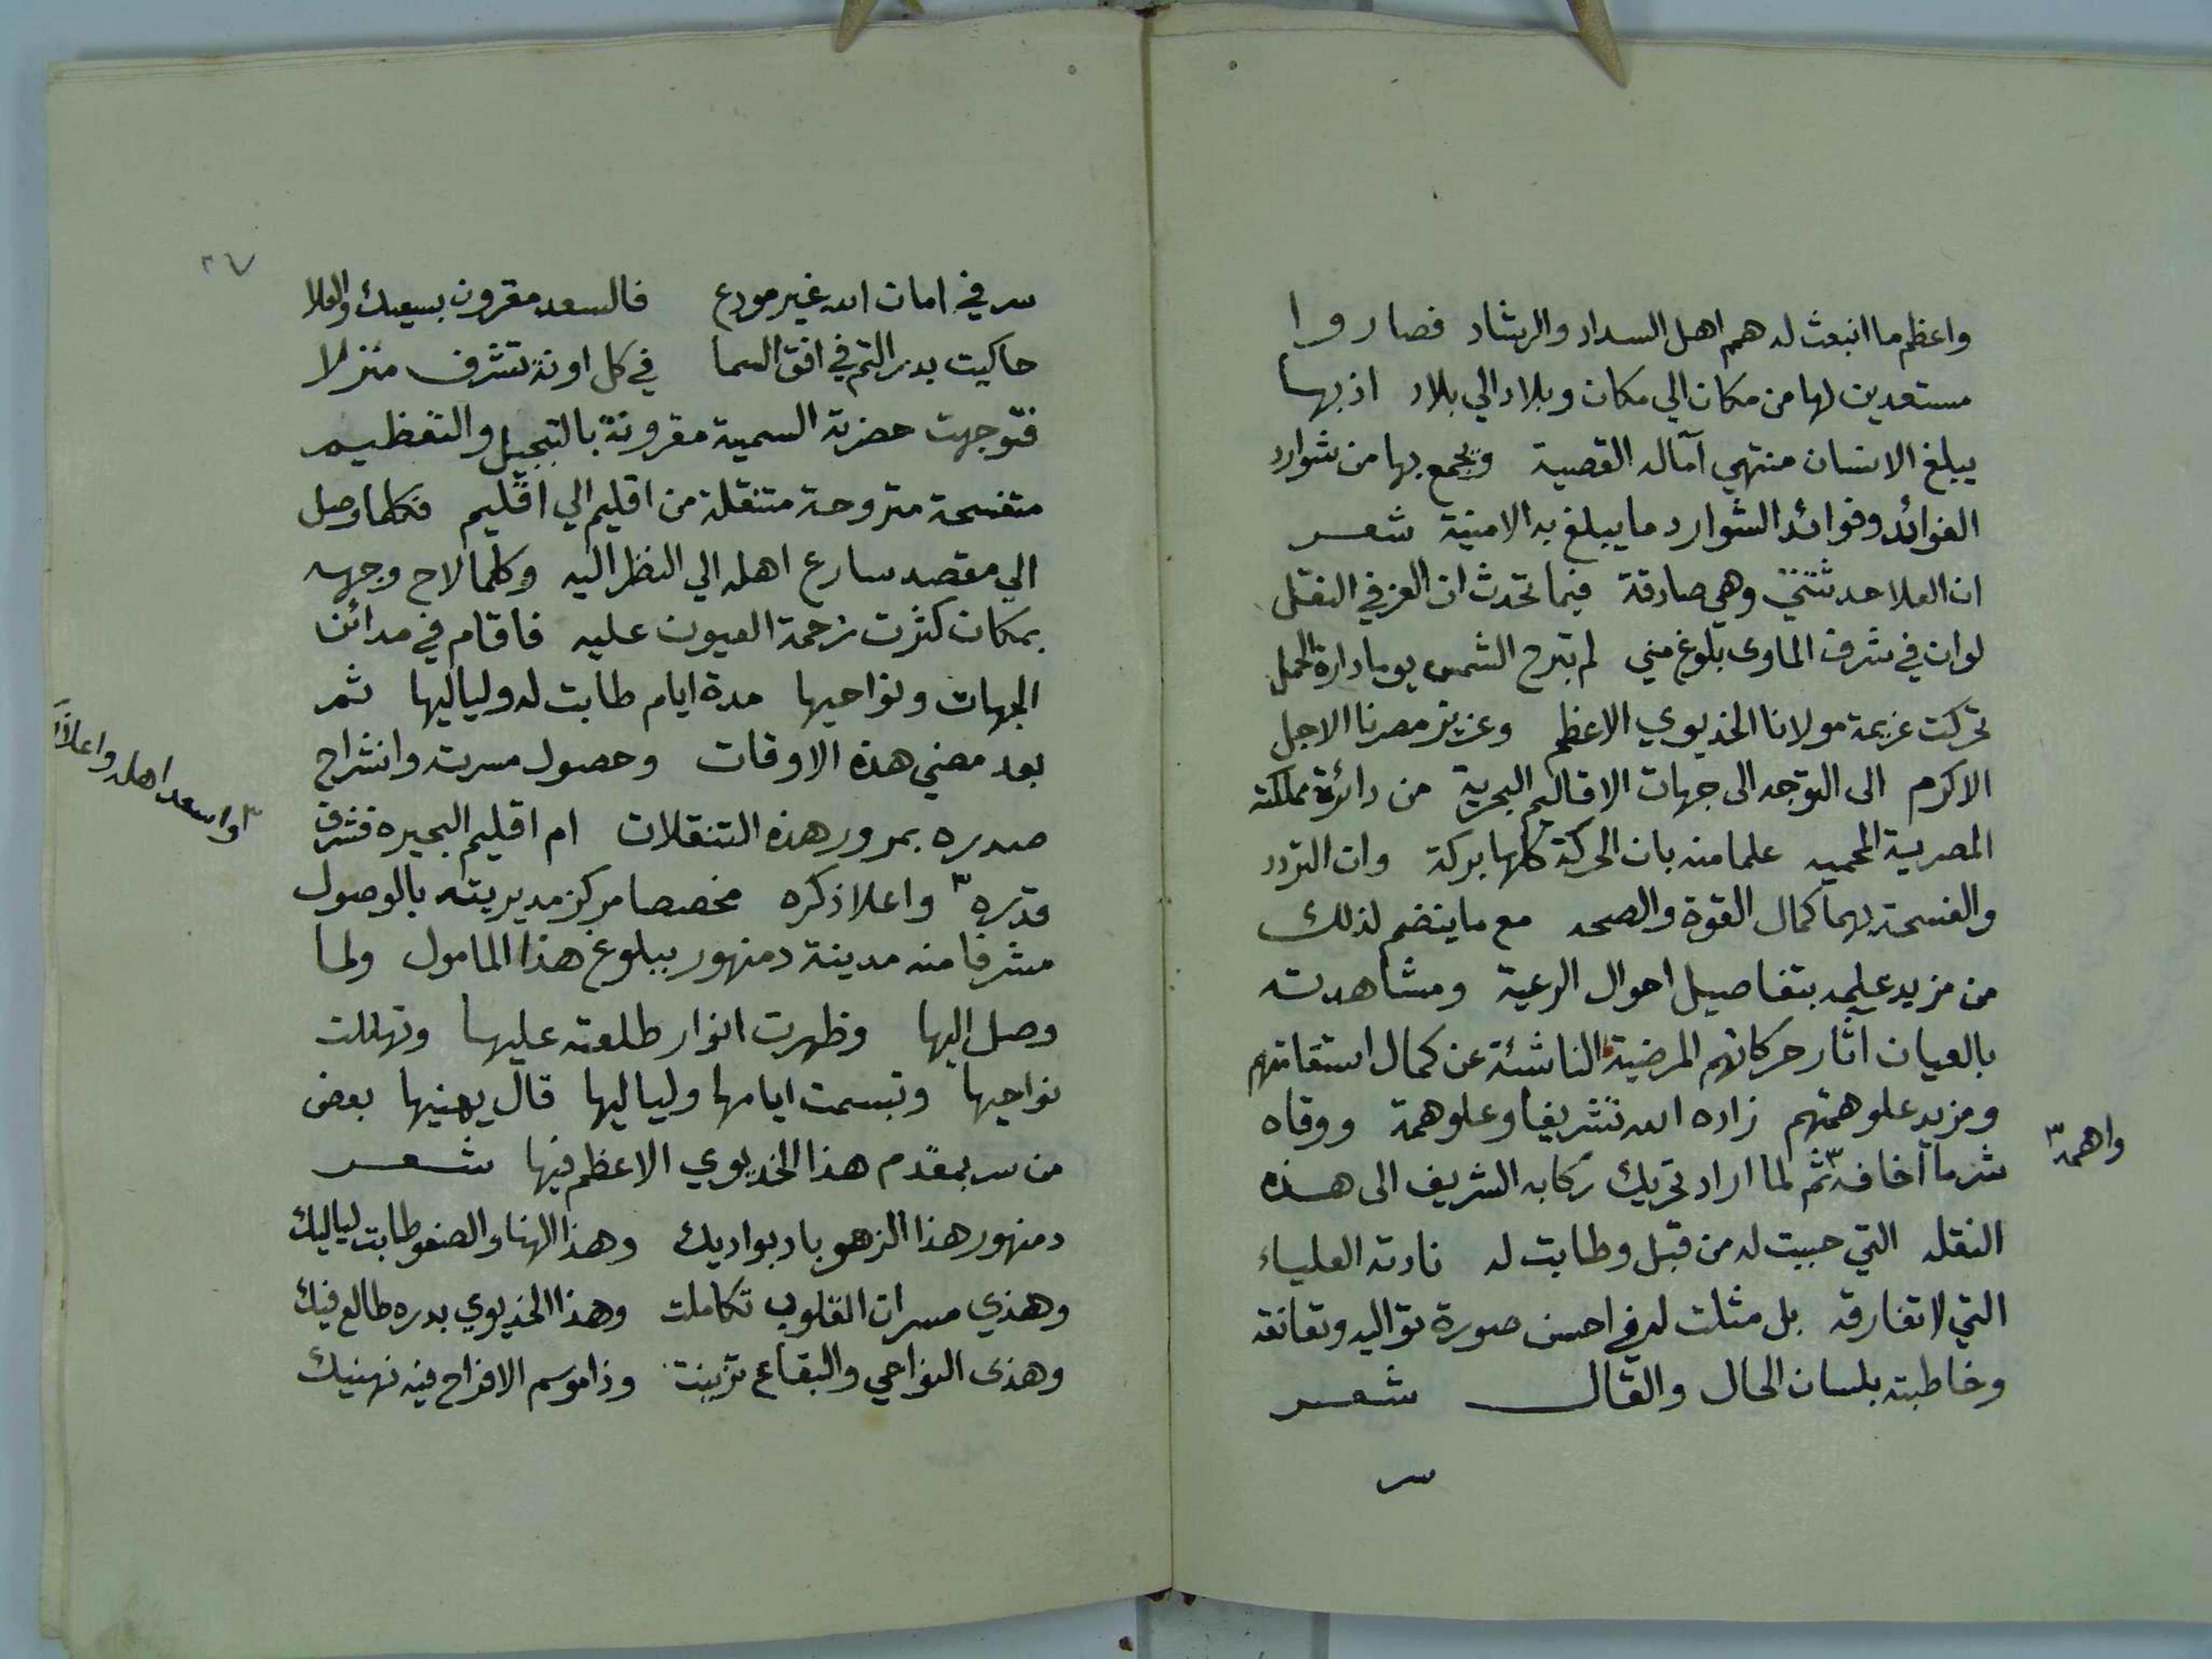 واعظم ما انبعث له همم اهل السداد والرشاد فصاروا
مستعدين لها من مكان الي مكان وبلاد الي بلاد اذ بها
يبلغ الانسان منتهي آماله القصية ويجمع بها من شوارد
الفوائد وفوائد الشوارد ما يبلغ به الامنية شعر
ان العلا حدثتني وهي صادقة فيما تحدث ان العز في النقل
لو ان في شرف الماوى بلوغ مني لم تبرح الشمس يوما دارة الحمل
تحركت عزيمة مولانا الخديوي الاعظم وعزيز مصرنا الاجل
الاكرم الى التوجه الى جهات الاقاليم البحرية من دائرة مملكته
المصرية المحميه علما منه بان الحركة كلها بركة وان التردد
والفسحة بهما كمال القوة والصحه مع ما ينضم لذلك
من مزيد علمه بتفاصيل احوال الرعية ومشاهدته
بالعيان اثار حركاتهم المرضية الناشئة عن كمال استقامتهم
ومزيد علو همتهم زاده الله تشريفا وعلو همة ووقاه
شر ما اخافه ٣ ثم لما اراد تحريك ركابه الشريف الى هذه
واهمه ٣
النقله التي حببت له من قبل وطابت له نادته العلياء
التي لا تفارقه بل مثلت له في احسن صورة تواليه وتعانقه
وخاطبته بلسان الحال والقال شعر
سر
٢٧
سر في امان الله غير مودع فالسعد مقرون بسعيك والعلا
حاكيت بدر التم في افق السما في كل اونة تشرف منزلا
فتوجهت حضرته السمية مقرونة بالتبجيل والتعظيم
متفسحة متروحة متنقلة من اقليم الي اقليم فكلما وصل
الي مقصد سارع اهله الي النظر اليه وكلما لاح وجهه
بمكان كثرت زحمة العيون عليه فاقام في مدائن
الجهات ونواحيها مدة ايام طابت له ولياليها ثم
بعد مضي هذه الاوقات وحصول مسرته وانشراح
صدره بمرور هذه التنقلات ام اقليم البحيره فشرف
قدره ٣ واعلا ذكره مخصصا مركز مديريته بالوصول
٣ واسعد اهله واعلا
مشرفا منه مدينة دمنهور ببلوغ هذا المامول ولما
وصل اليها وظهرت انوار طلعته عليها وتهللت
نواحيها وتبسمت ايامها ولياليها قال يهنيها بعض
من سر بمقدم هذا الخديوي الاعظم فيها شعر
دمنهور هذا الزهو باد بواديك وهذا الهنا والصفو طابت لياليك
وهذي مسرات القلوب تكاملت وهذا الخديوي بدره طالع فيك
وهذى النواحي والبقاع تزينت وذا موسم الافراح فيه نهنيك